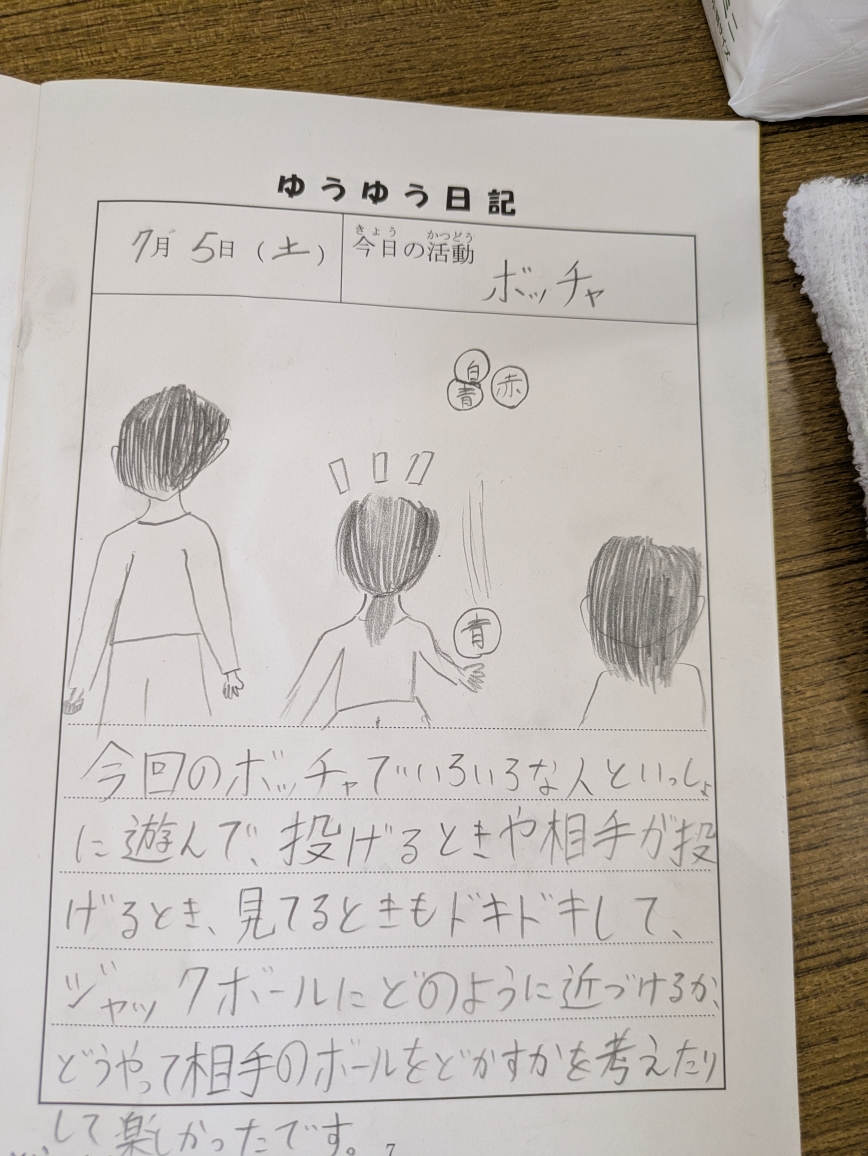 ゆうゆう日記
7月 5日（土）
きょう かつどう
今日の活動
ボッチャ
白
青 赤
青
今回のボッチャでいろいろな人といっしょ
に遊んで、投げるときや相手が投
げるとき、見てるときもドキドキして、
ジャックボールにどのように近づけるか、
どうやって相手のボールをどかすかを考えたり
して楽しかったです。
7